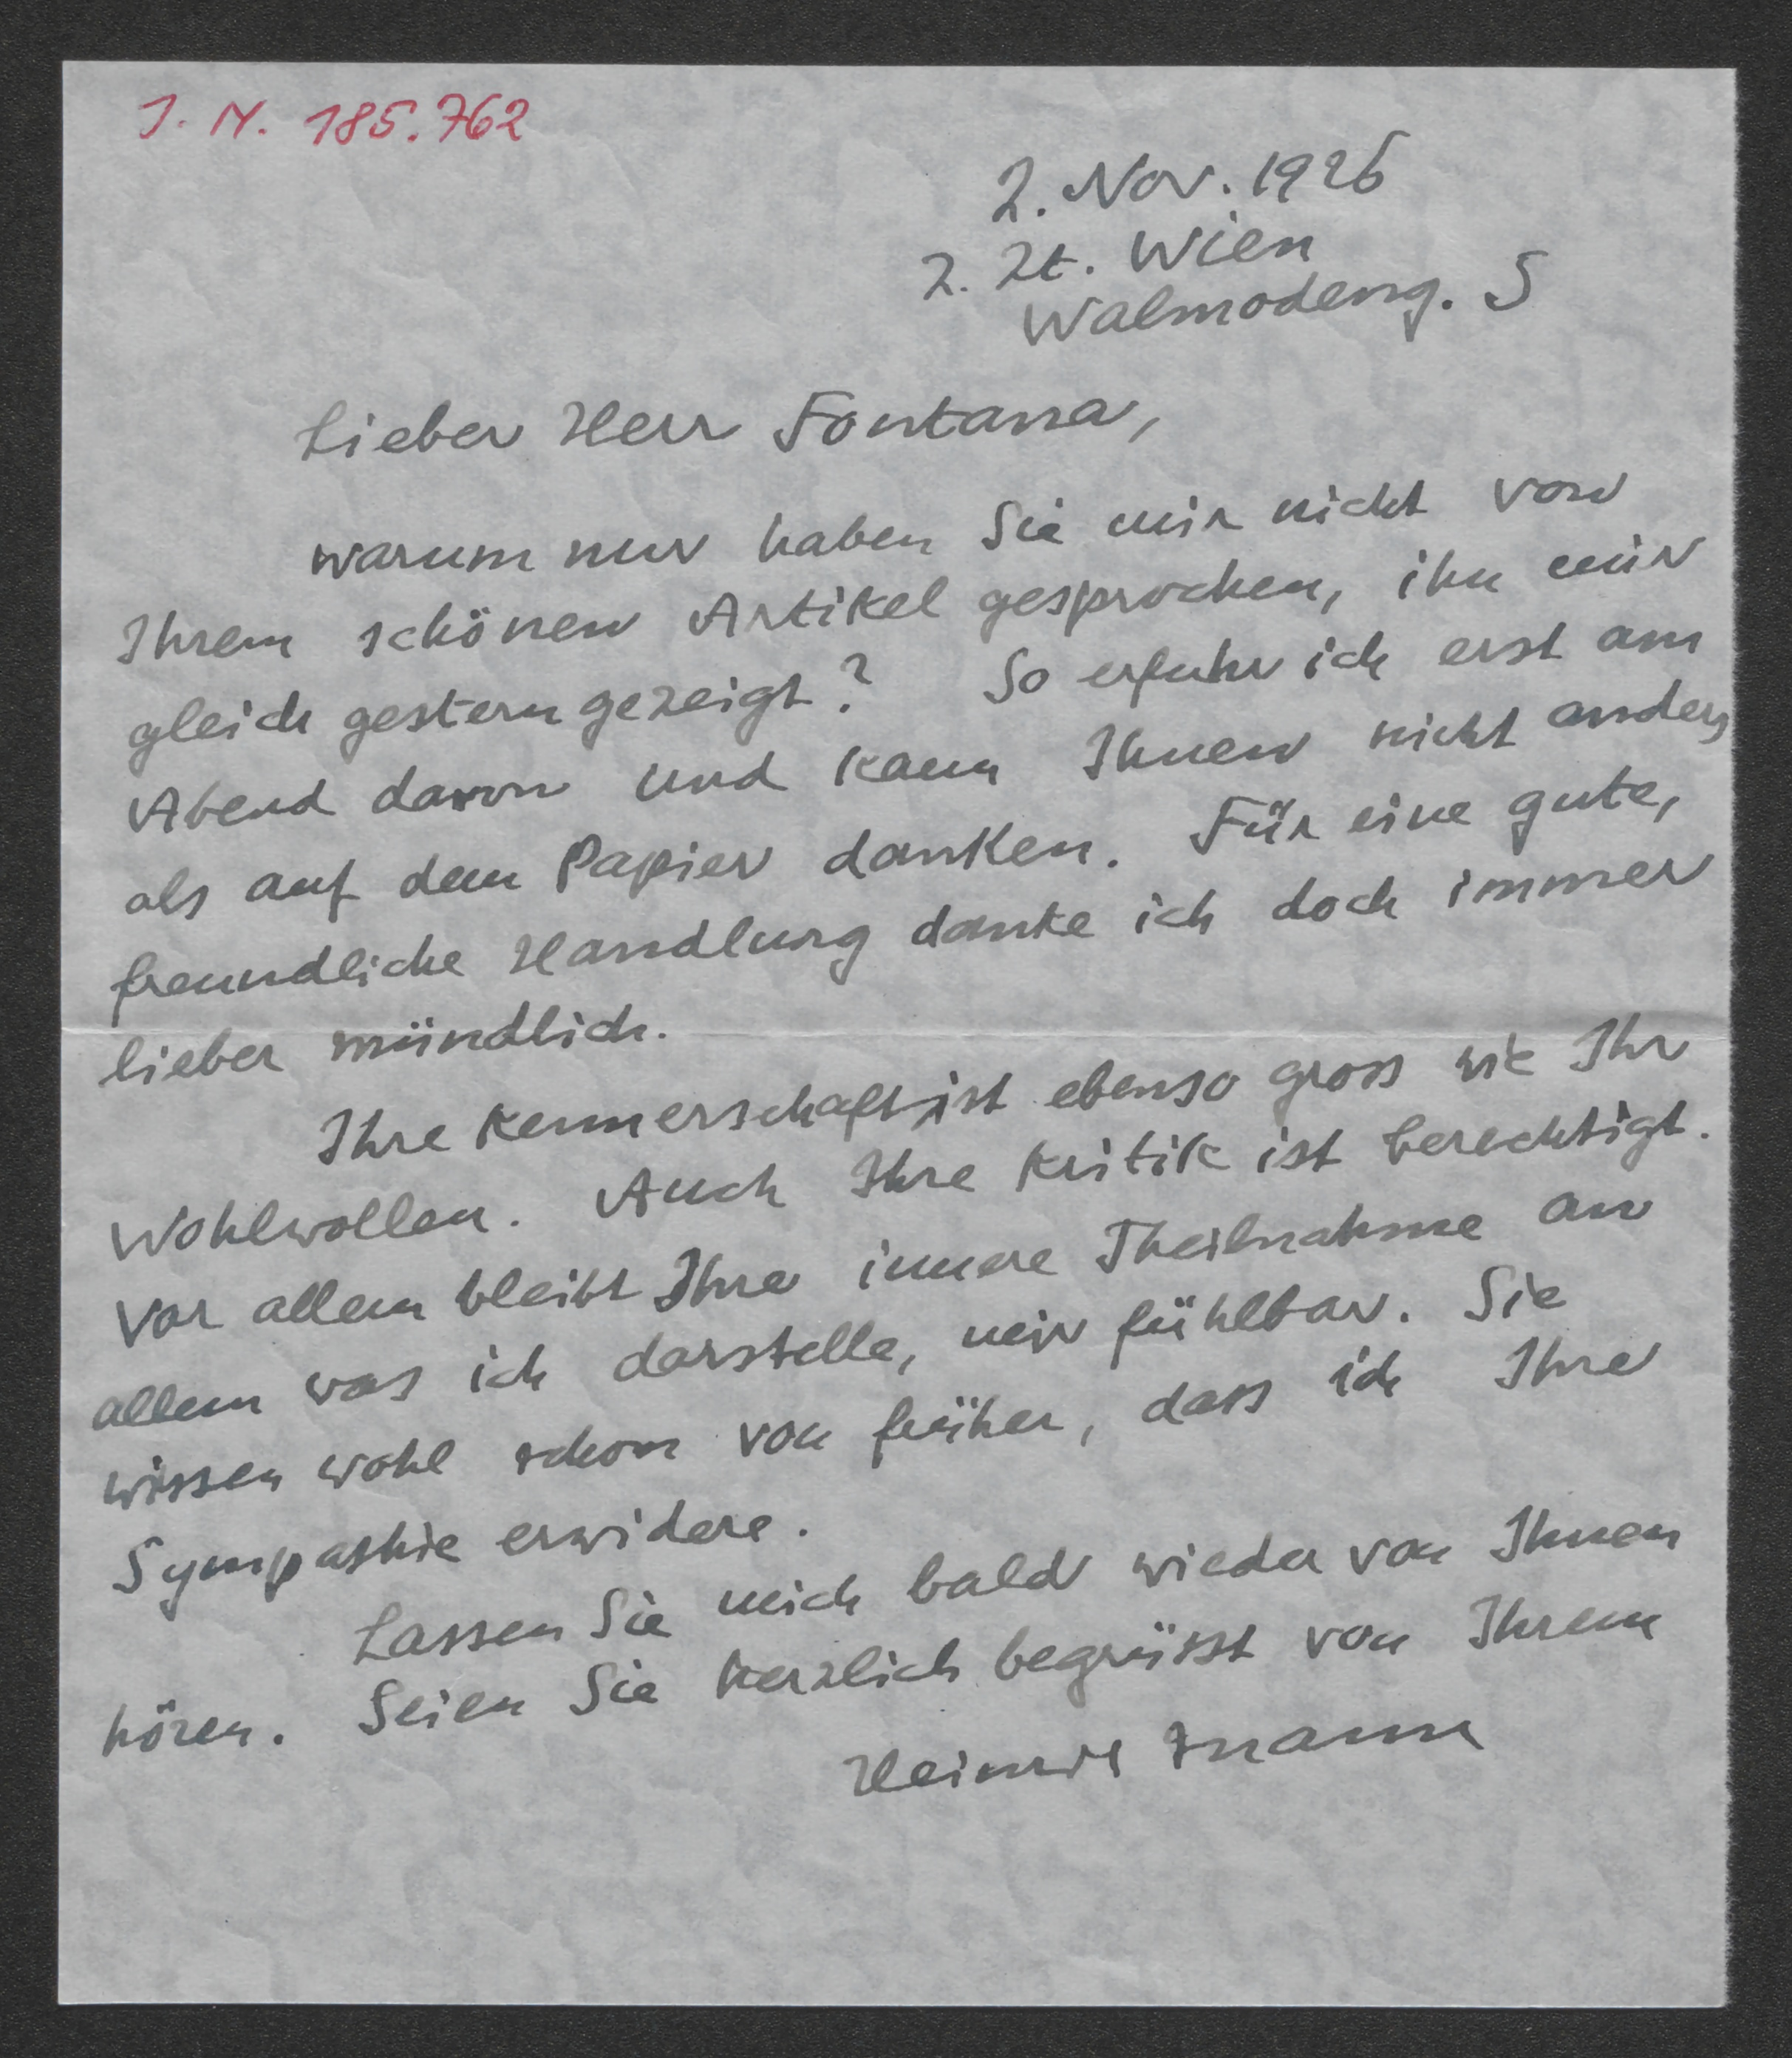 J. N. 185.762
2. Nov. 1926
z. Zt. Wien
Walmodeng. 5
Lieber Herr Fontana,
warum nur haben Sie mir nicht von
Ihrem schönen Artikel gesprochen, ihn mir
gleich gestern gezeigt? So erfuhr ich erst am
Abend davon und kann Ihnen nicht anders
als auf dem Papier danken. Für eine gute,
freundliche Handlung danke ich doch immer
lieber mündlich.
Ihre Kennerschaft ist ebenso gross wie Ihr
Wohlwollen. Auch Ihre Kritik ist berechtigt.
Vor allem bleibt Ihre innere Theilnahme an
allem was ich darstelle, mir fühlbar. Sie
wissen wohl schon von früher, dass ich Ihre
Sympathie erwidere.
Lassen Sie mich bald wieder von Ihnen
hören. Seien Sie herzlich begrüsst von Ihrem
Heinrich Mann